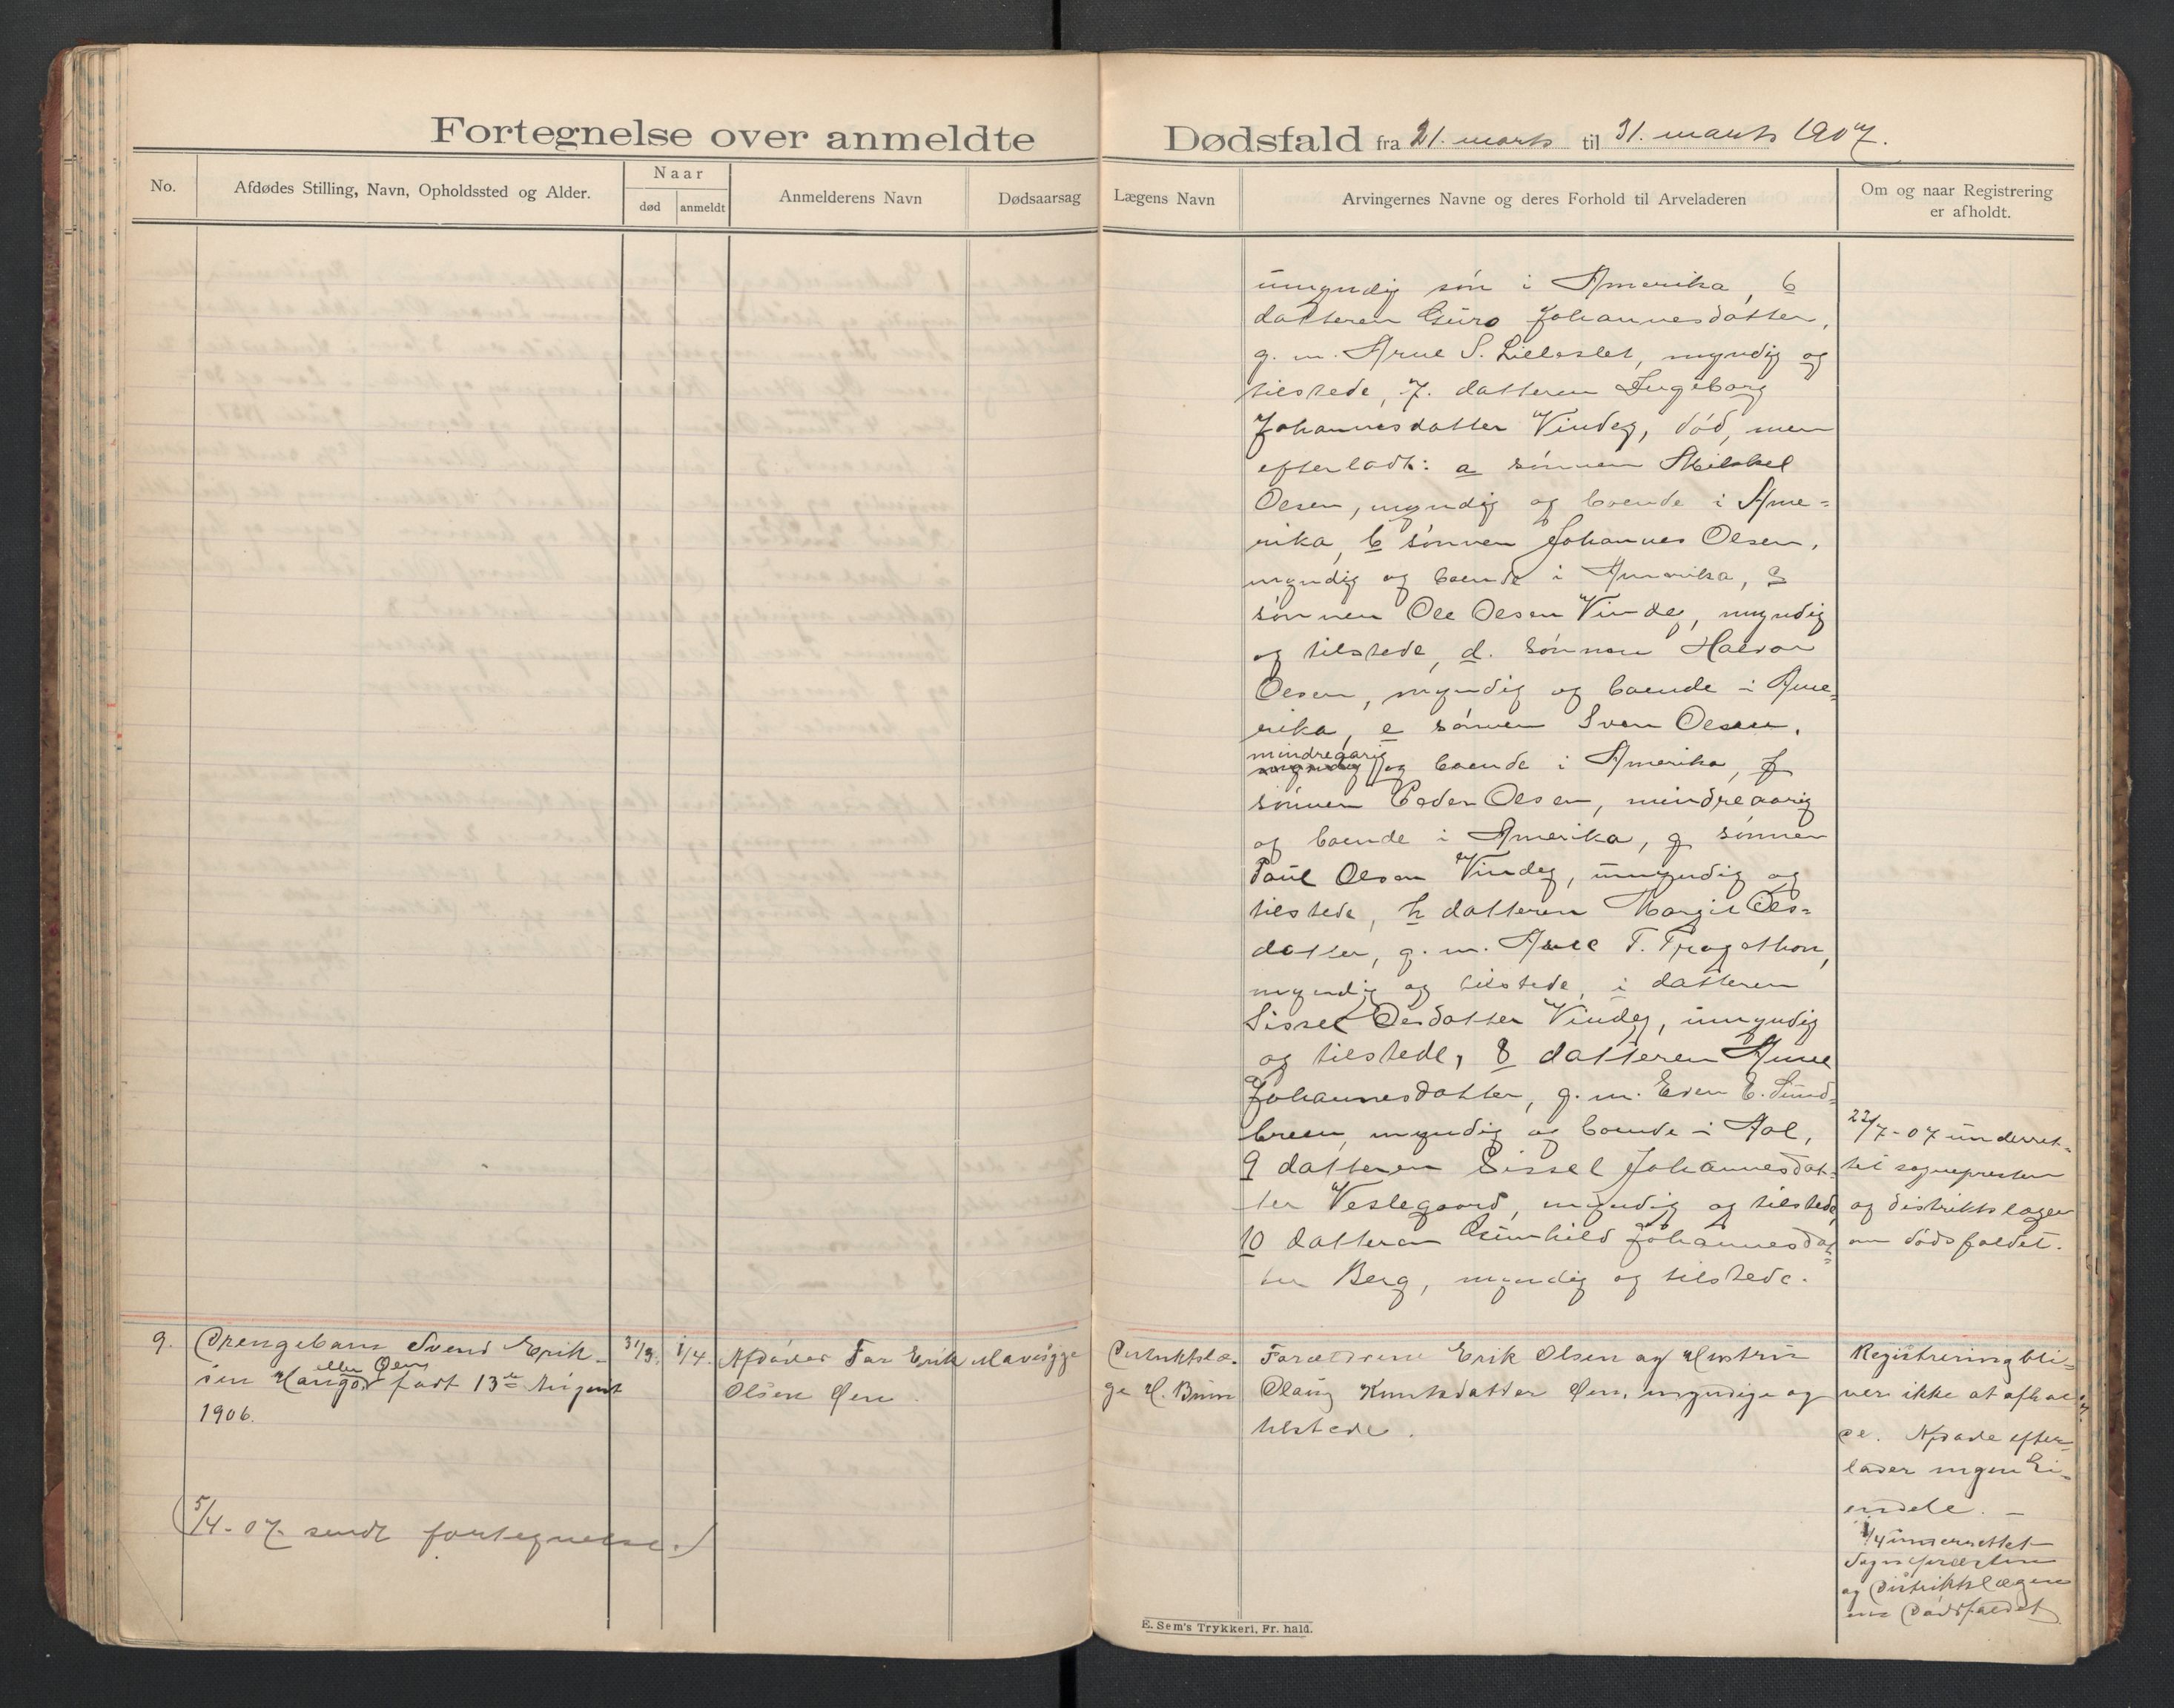 Fortegnelse over anmeldte Dødsfald fra 21. marts til 31. marts 1907.
No.
Afdødes Stilling, Navn, Opholdssted og Alder.
Naar
død
anmeldt
Anmelderens Navn
Dødsaarsag
Lægens Navn
Arvingernes Navne og deres Forhold til Arveladeren
Om og naar Registrering
er afholdt.
umyndig søn i Amerika, b
datteren Guro Johannesdatter,
g. m. Arne S. Lilleslet, myndig og
tilstede, 7. datteren Ingeborg
Johannesdatter Vindeg, død, men
efterladt: a sønnen Mikkel
Olsen, myndig og boende i Ame-
rika, b sønnen Johannes Olsen,
myndig og boende i Amerika, c
sønnen Ole Olsen Vindeg, myndig
og tilstede, d. sønnen Halvor
Olsen, myndig og boende i Ame-
rika, e sønnen Sven Olsen,
mindreaarig
myndig og boende i Amerika, f
sønnen Peder Olsen, mindreaarig
og boende i Amerika, g sønnen
Paul Olsen Vindeg, umyndig og
tilstede, h datteren Margit Ols-
datter, g. m. Arne T. Tragethon,
myndig og tilstede, i datteren
Sissel Olsdatter Vindeg, umyndig
og tilstede, 8 datteren Anne
Johannesdatter, g. m. Even E. Sund-
breen, myndig og boende i Aal,
9 datteren Sissel Johannesdat-
ter Veslegaard, myndig og tilstede
10 datteren Gunhild Johannesdat-
ter Berg, myndig og tilstede.
22/7-07 underret-
tet sognepresten
og distriktslægen
om dødsfaldet.
9.
Drengebarn Svend Erik-
eller Øen
sen Haugo født 13de August
1906.
31/3.
1/4.
Afdødes Far Erik
Olsen Øen.
Mavesyge
Distriktslæ-
ge H. Bruun
Forældrene Erik Olsen og Hustru
Olaug Knutsdatter Øen, myndige og
tilstede.
Registrering bli-
ver ikke at afhol-
de. Afdøde efter-
lader ingen Ei-
endele. –
1/4 underrettet
Sognepræsten
og Distriktslægen
om Dødsfaldet
(5/4-07 sendt fortegnelse.)
E. Sem's Trykkeri, Fr. hald.